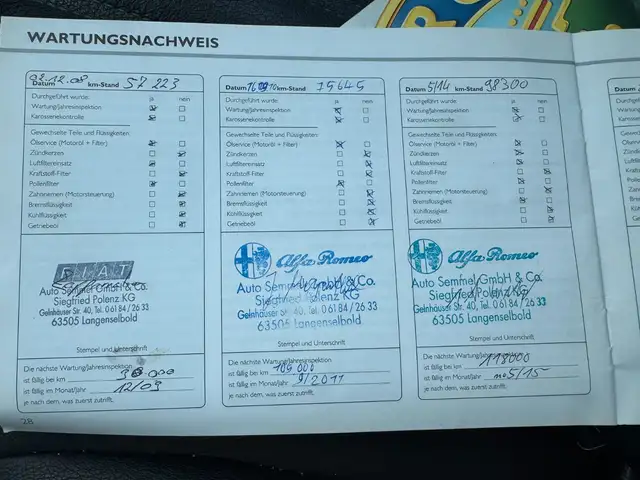 WARTUNGSNACHWEIS
Datum 02.12.08 km-Stand 57 223
Durchgeführt wurde: ja nein
Wartung/Jahresinspektion
Karosseriekontrolle
Gewechselte Teile und Flüssigkeiten:
Ölservice (Motoröl + Filter)
Zündkerzen
Luftfiltereinsatz
Kraftstoff-Filter
Pollenfilter
Zahnriemen (Motorsteuerung)
Bremsflüssigkeit
Kühlflüssigkeit
Getriebeöl
FIAT
Auto Semmel GmbH & Co.
Siegfried Polenz KG
Gelnhäuser Str. 40, Tel. 0 61 84 / 26 33
63505 Langenselbold
Stempel und Unterschrift
Die nächste Wartung/Jahresinspektion
ist fällig bei km
ist fällig im Monat/Jahr 12/09
je nach dem, was zuerst zutrifft.
28
Datum km-Stand 75645
Durchgeführt wurde: ja nein
Wartung/Jahresinspektion
Karosseriekontrolle
Gewechselte Teile und Flüssigkeiten:
Ölservice (Motoröl + Filter)
Zündkerzen
Luftfiltereinsatz
Kraftstoff-Filter
Pollenfilter
Zahnriemen (Motorsteuerung)
Bremsflüssigkeit
Kühlflüssigkeit
Getriebeöl
Alfa Romeo
Auto Semmel GmbH & Co.
Siegfried Polenz KG
Gelnhäuser Str. 40, Tel. 0 61 84 / 26 33
63505 Langenselbold
Stempel und Unterschrift
Die nächste Wartung/Jahresinspektion
ist fällig bei km 105 000
ist fällig im Monat/Jahr 9/2011
je nach dem, was zuerst zutrifft.
Datum 5/14 km-Stand 98300
Durchgeführt wurde: ja nein
Wartung/Jahresinspektion
Karosseriekontrolle
Gewechselte Teile und Flüssigkeiten:
Ölservice (Motoröl + Filter)
Zündkerzen
Luftfiltereinsatz
Kraftstoff-Filter
Pollenfilter
Zahnriemen (Motorsteuerung)
Bremsflüssigkeit
Kühlflüssigkeit
Getriebeöl
Alfa Romeo
Auto Semmel GmbH & Co.
Siegfried Polenz KG
Gelnhäuser Str. 40, Tel. 0 61 84 / 26 33
63505 Langenselbold
Stempel und Unterschrift
Die nächste Wartung/Jahresinspektion
ist fällig bei km 118000
ist fällig im Monat/Jahr 5/15
je nach dem, was zuerst zutrifft.